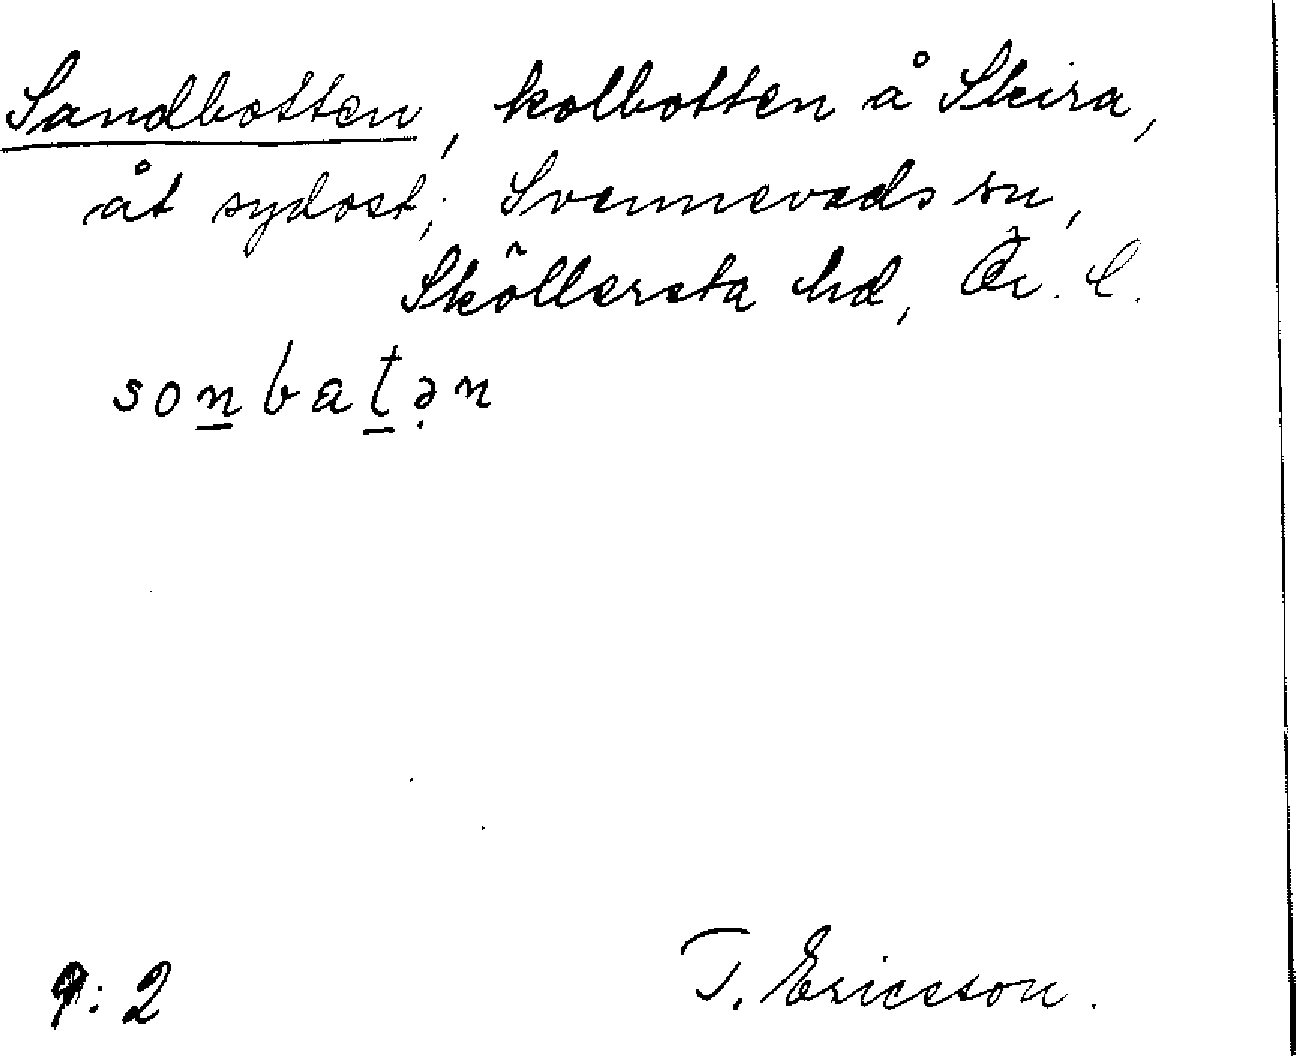 Sandbotten, kolbotten å Skira,
åt sydost; Svennevads sn,
Sköllersta hd, Ör. l.
son̲bat̲ə̣n
9:2
T. Ericsson.